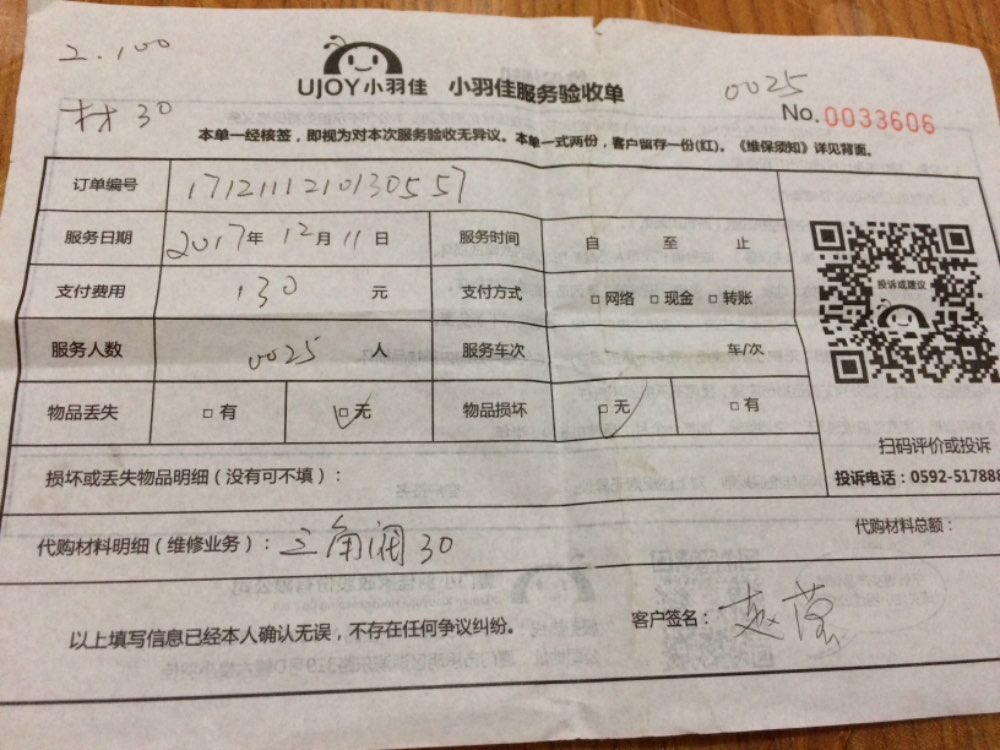 2.100
材30
UJOY小羽佳 小羽佳服务验收单
0025
No.0033606
本单一经核签，即视为对本次服务验收无异议。本单一式两份，客户留存一份(红)。《维保须知》详见背面。
订单编号 171211121013055​7
服务日期 2017年 12月 11日 服务时间 自 至 止
支付费用 130 元 支付方式 □网络 □现金 □转账
服务人数 0025 人 服务车次 车/次
物品丢失 □有 □无 物品损坏 □无 □有
投诉或建议
扫码评价或投诉
投诉电话：0592-517888
损坏或丢失物品明细（没有可不填）：
代购材料明细（维修业务）：三角阀30 代购材料总额：
以上填写信息已经本人确认无误，不存在任何争议纠纷。 客户签名：